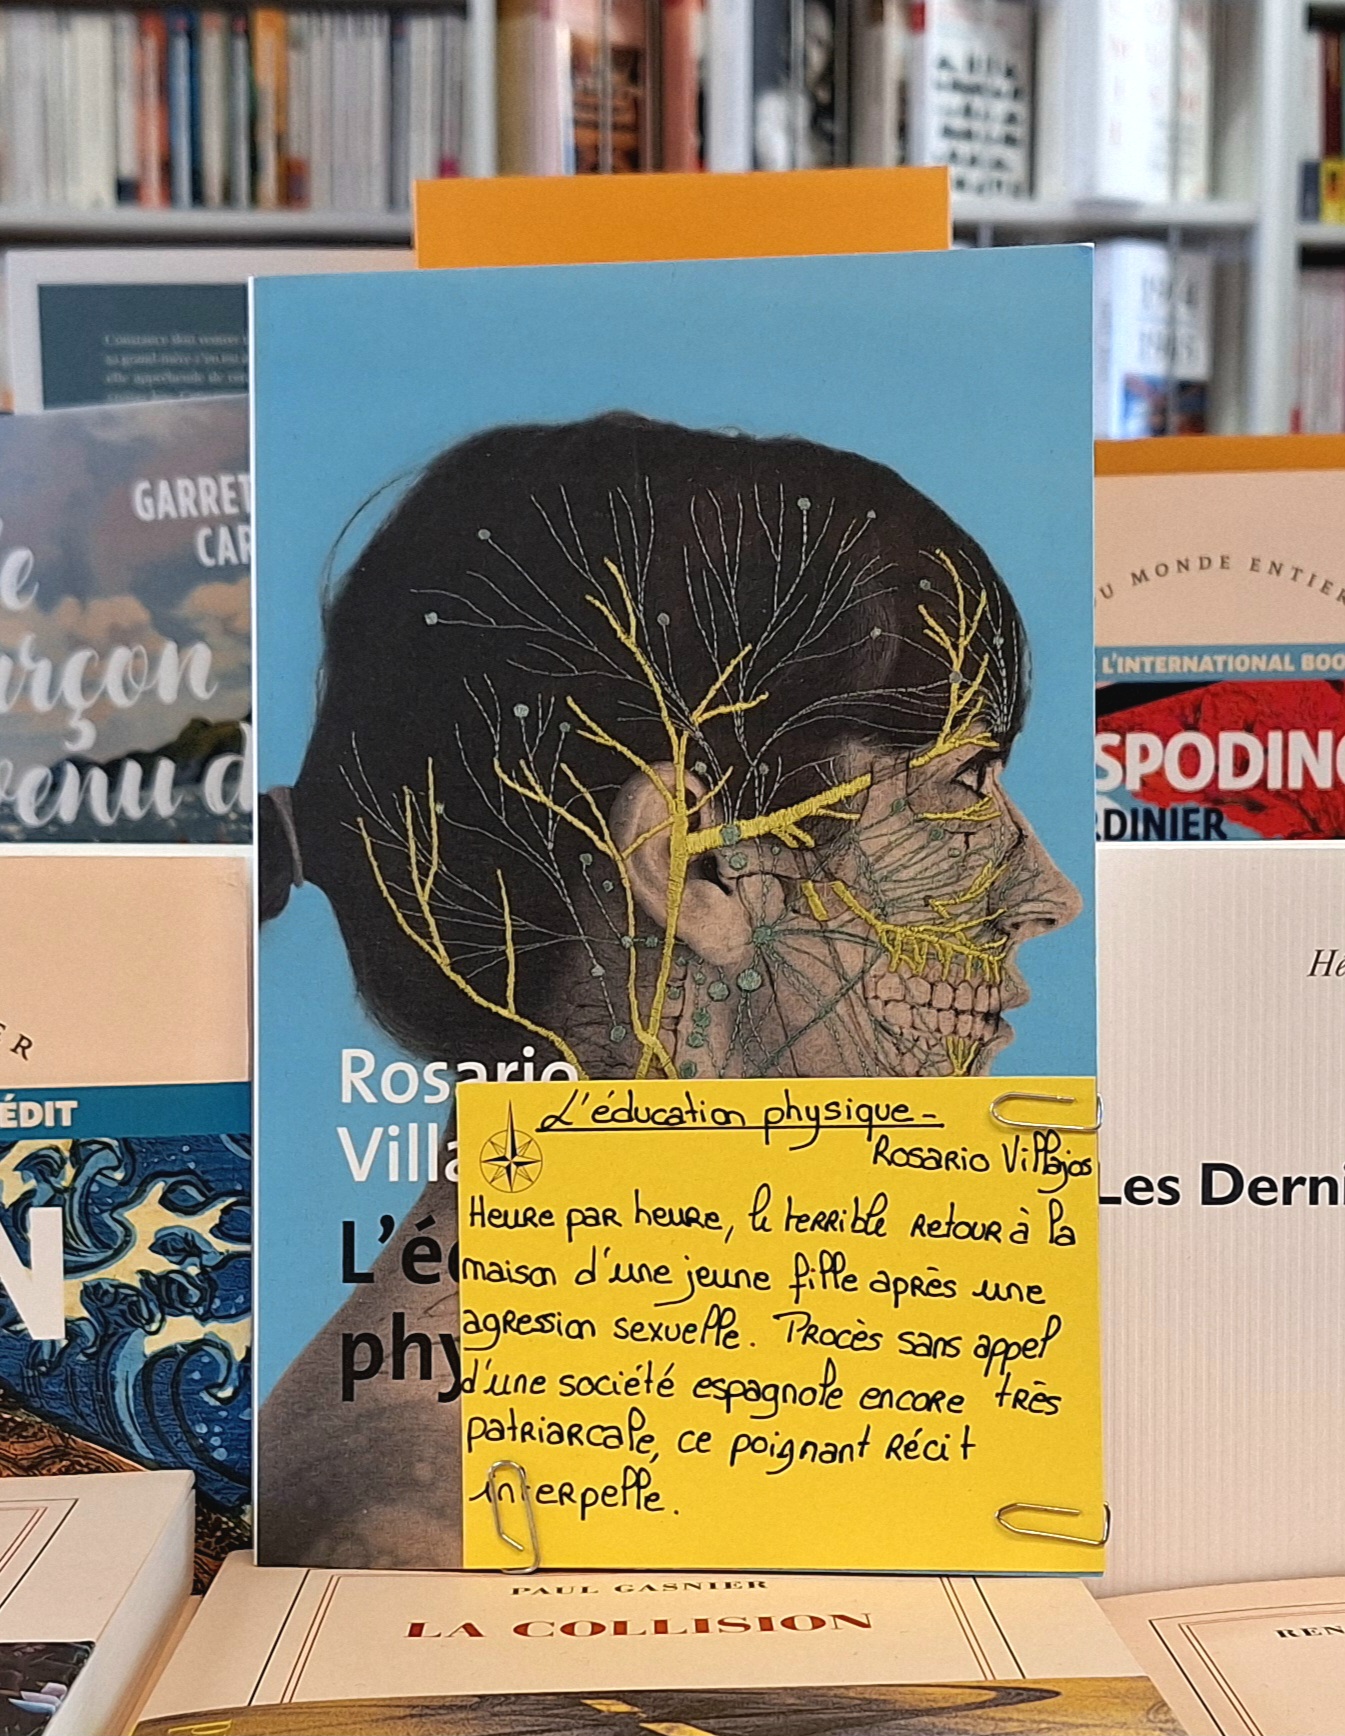 GARRET
CAR
arçon
venu d
DU MONDE ENTIER
L'INTERNATIONAL BOO
SPODINO
RDINIER
ÉDIT
N
Rosario
Villa
L'é
phy
L'éducation physique -
Rosario Villajos
Heure par heure, le terrible retour à la
maison d'une jeune fille après une
agression sexuelle. Procès sans appel
d'une société espagnole encore très
patriarcale, ce poignant récit
interpelle.
Les Derni
He
PAUL GASNIER
LA COLLISION
REN